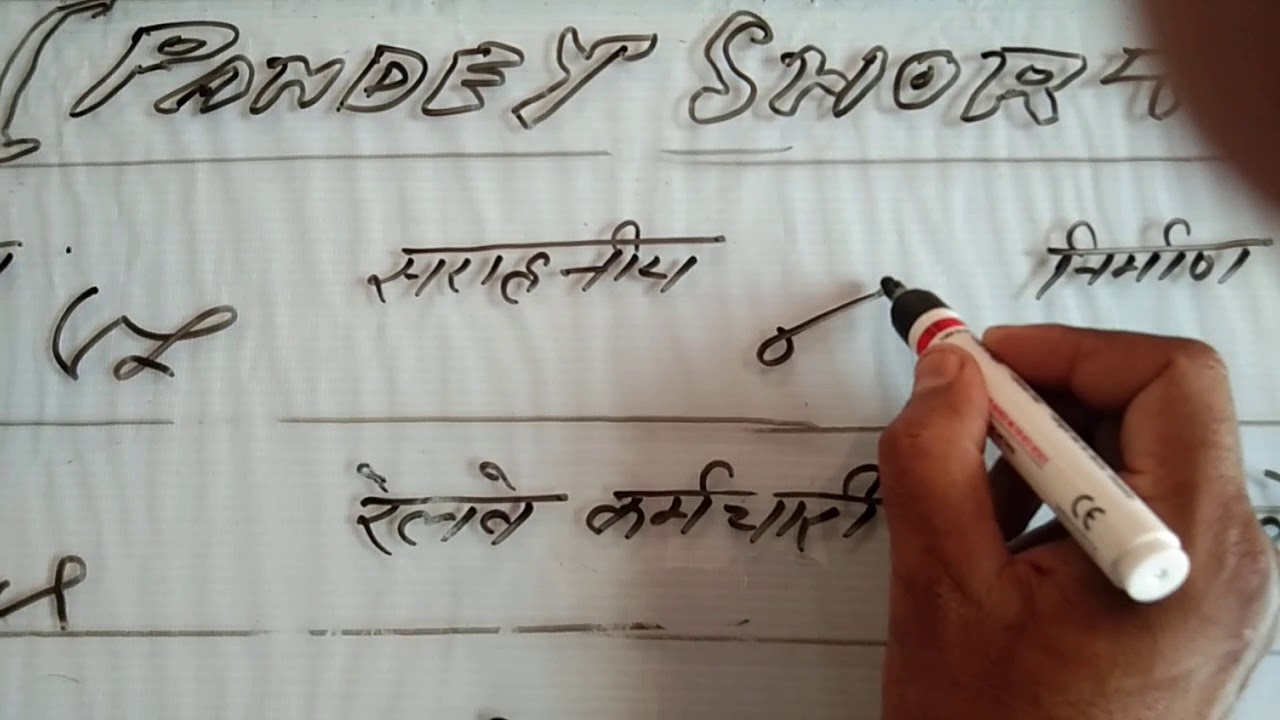 PANDEY SHOR
सराहनीय निर्माण
रेलवे कर्मचारी
CE